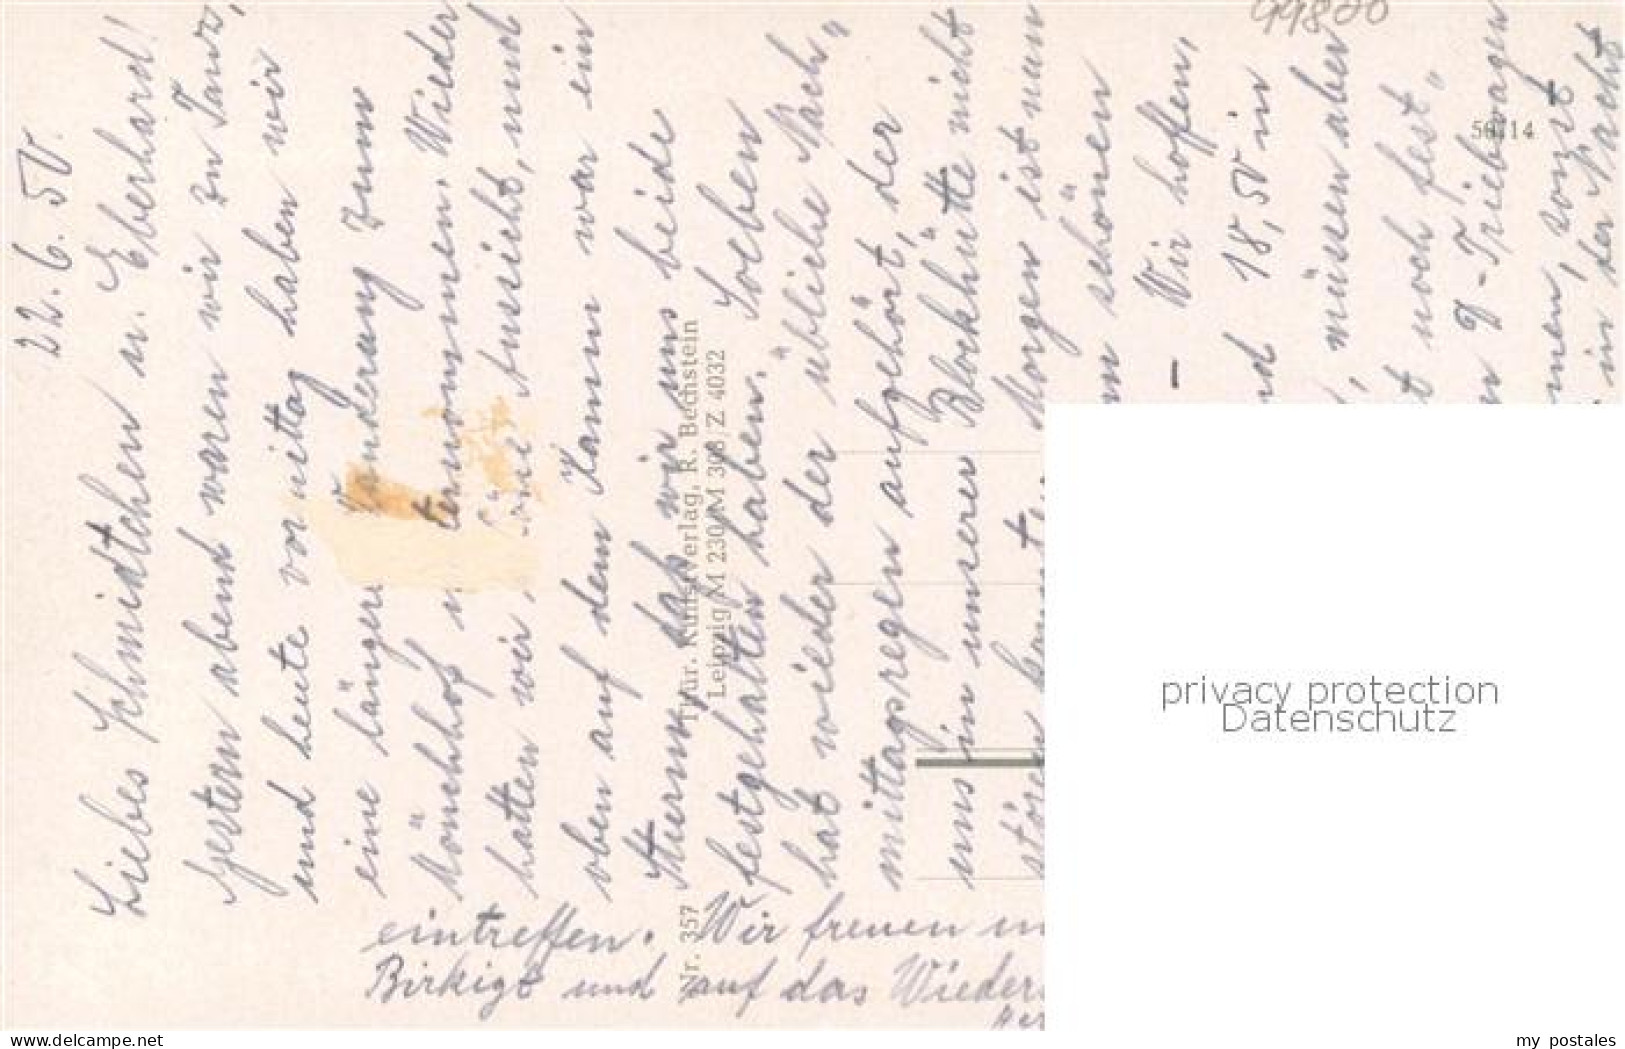 22.6.50.
Liebes Schmidtchen u. Eberhard!
Gestern abend waren wir zu Tanz,
und heute vormittag haben wir
eine längere Wanderung zum
Mönchhof unternommen. Wieder
hatten wir schöne Aussicht, und
oben auf dem Kamm war ein
Sturm, daß wir uns beide
festgehalten haben. Soeben
hat wieder der "übliche Nach"
mittagsregen aufgehört, der
uns in unserer Blockhütte nicht
stören konnte. Morgen ist nun
schönen
- Wir hoffen,
18,50 in
müssen aber
noch fest"
Triebwagen
sonst
in der Nacht
eintreffen. Wir freuen
Birkigt und auf das Wieders
99800
50/14
Nr. 357 Thür. Kunstverlag, R. Bechstein
Leipzig M 230/M 308 Z 4032
privacy protection
Datenschutz
www.delcampe.net
my_postales